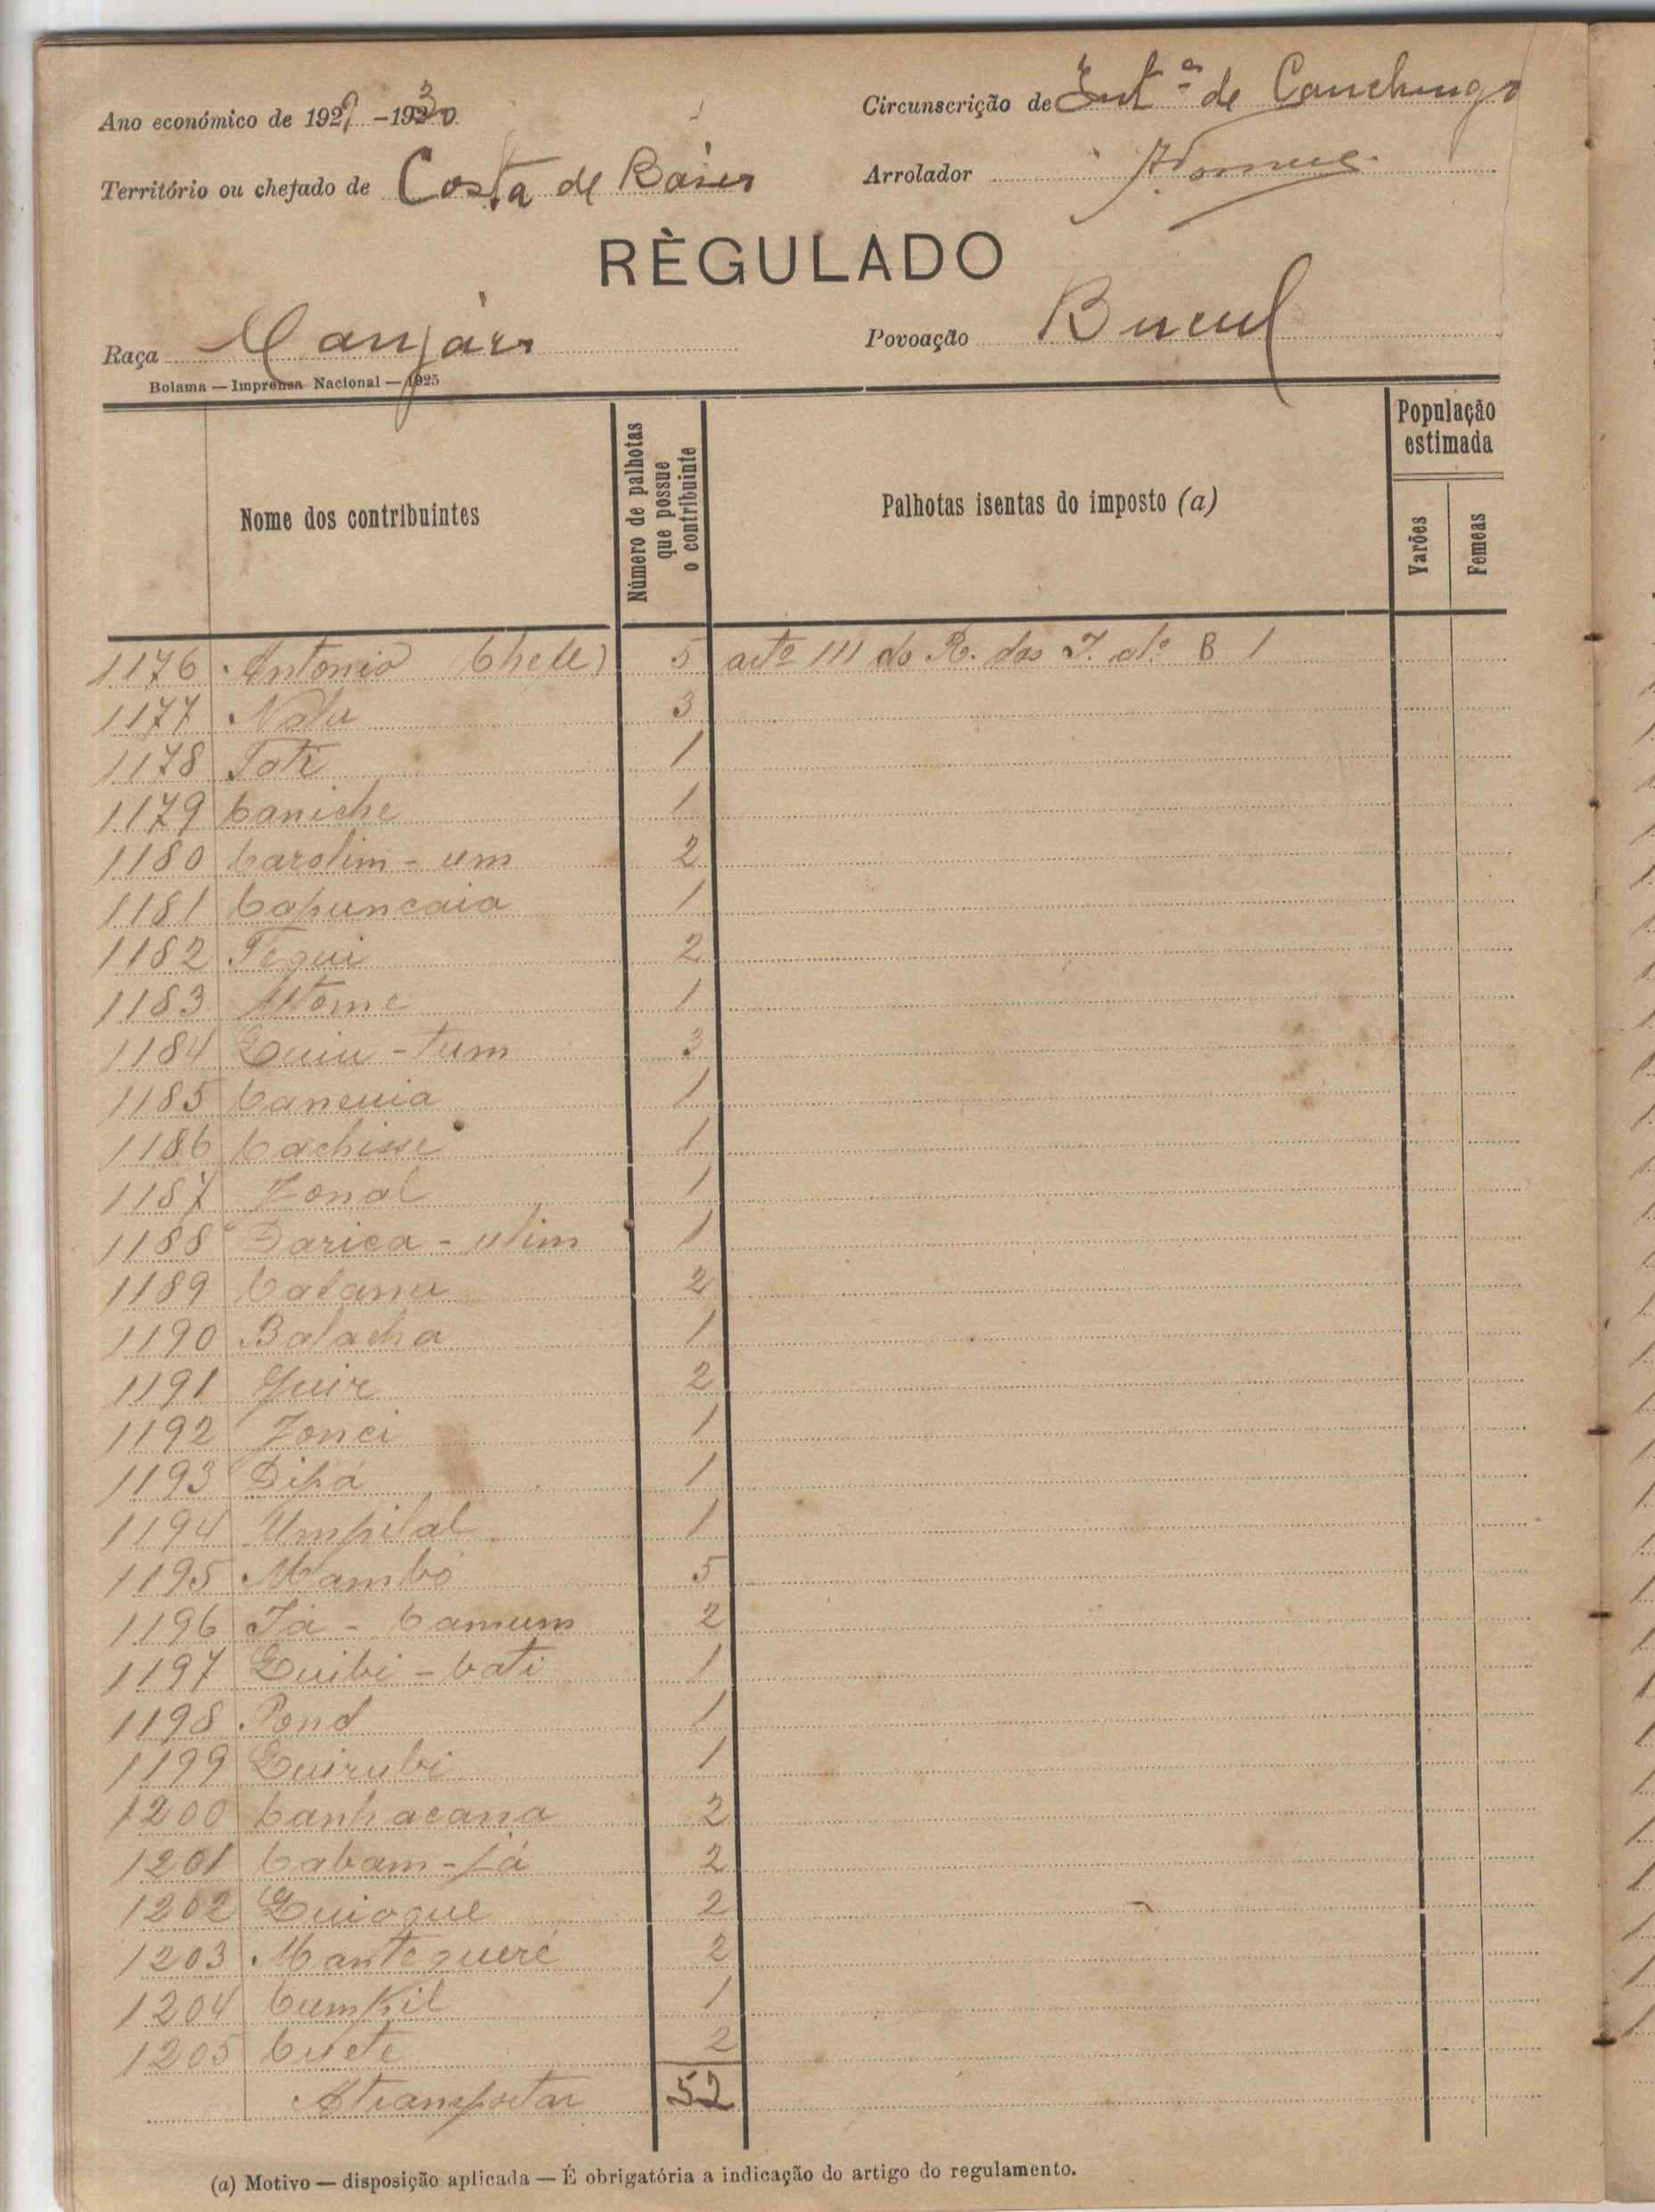 Ano económico de 1929 -1930
Circunscrição de Intª de Canchungo
Território ou chefado de Costa de Báner
Arrolador
RÈGULADO
Raça Manjáca
Povoação Bucul
Bolama — Imprensa Nacional — 1925
Nome dos contribuintes
Número de palhotas que possue o contribuinte
Palhotas isentas do imposto (a)
População estimada
Varões
Femeas
1176 Antonio (Chefe) 5 artº 111 do R. das I. al. B 1
1177 Natu 3
1178 Toti 1
1179 Caniche 1
1180 Carolim - um 2
1181 Capuncaia 1
1182 Tegui 2
1183 Utome 1
1184 Quiu - tum 3
1185 Canecuia 1
1186 Cachisse 1
1187 Zonal 1
1188 Darica - ulim 1
1189 Catamu 2
1190 Balacha 1
1191 Guir 2
1192 Zonci 1
1193 Dipá 1
1194 Umpilal 1
1195 Mambó 5
1196 Já - Camum 2
1197 Quibi - bati 1
1198 Pond 1
1199 Quirubi 1
1200 Canhacana 2
1201 Cabam - já 2
1202 Quioque 2
1203 Mantegueré 2
1204 Cumpil 1
1205 Cuete 2
A transportar 52
(a) Motivo — disposição aplicada — É obrigatória a indicação do artigo do regulamento.